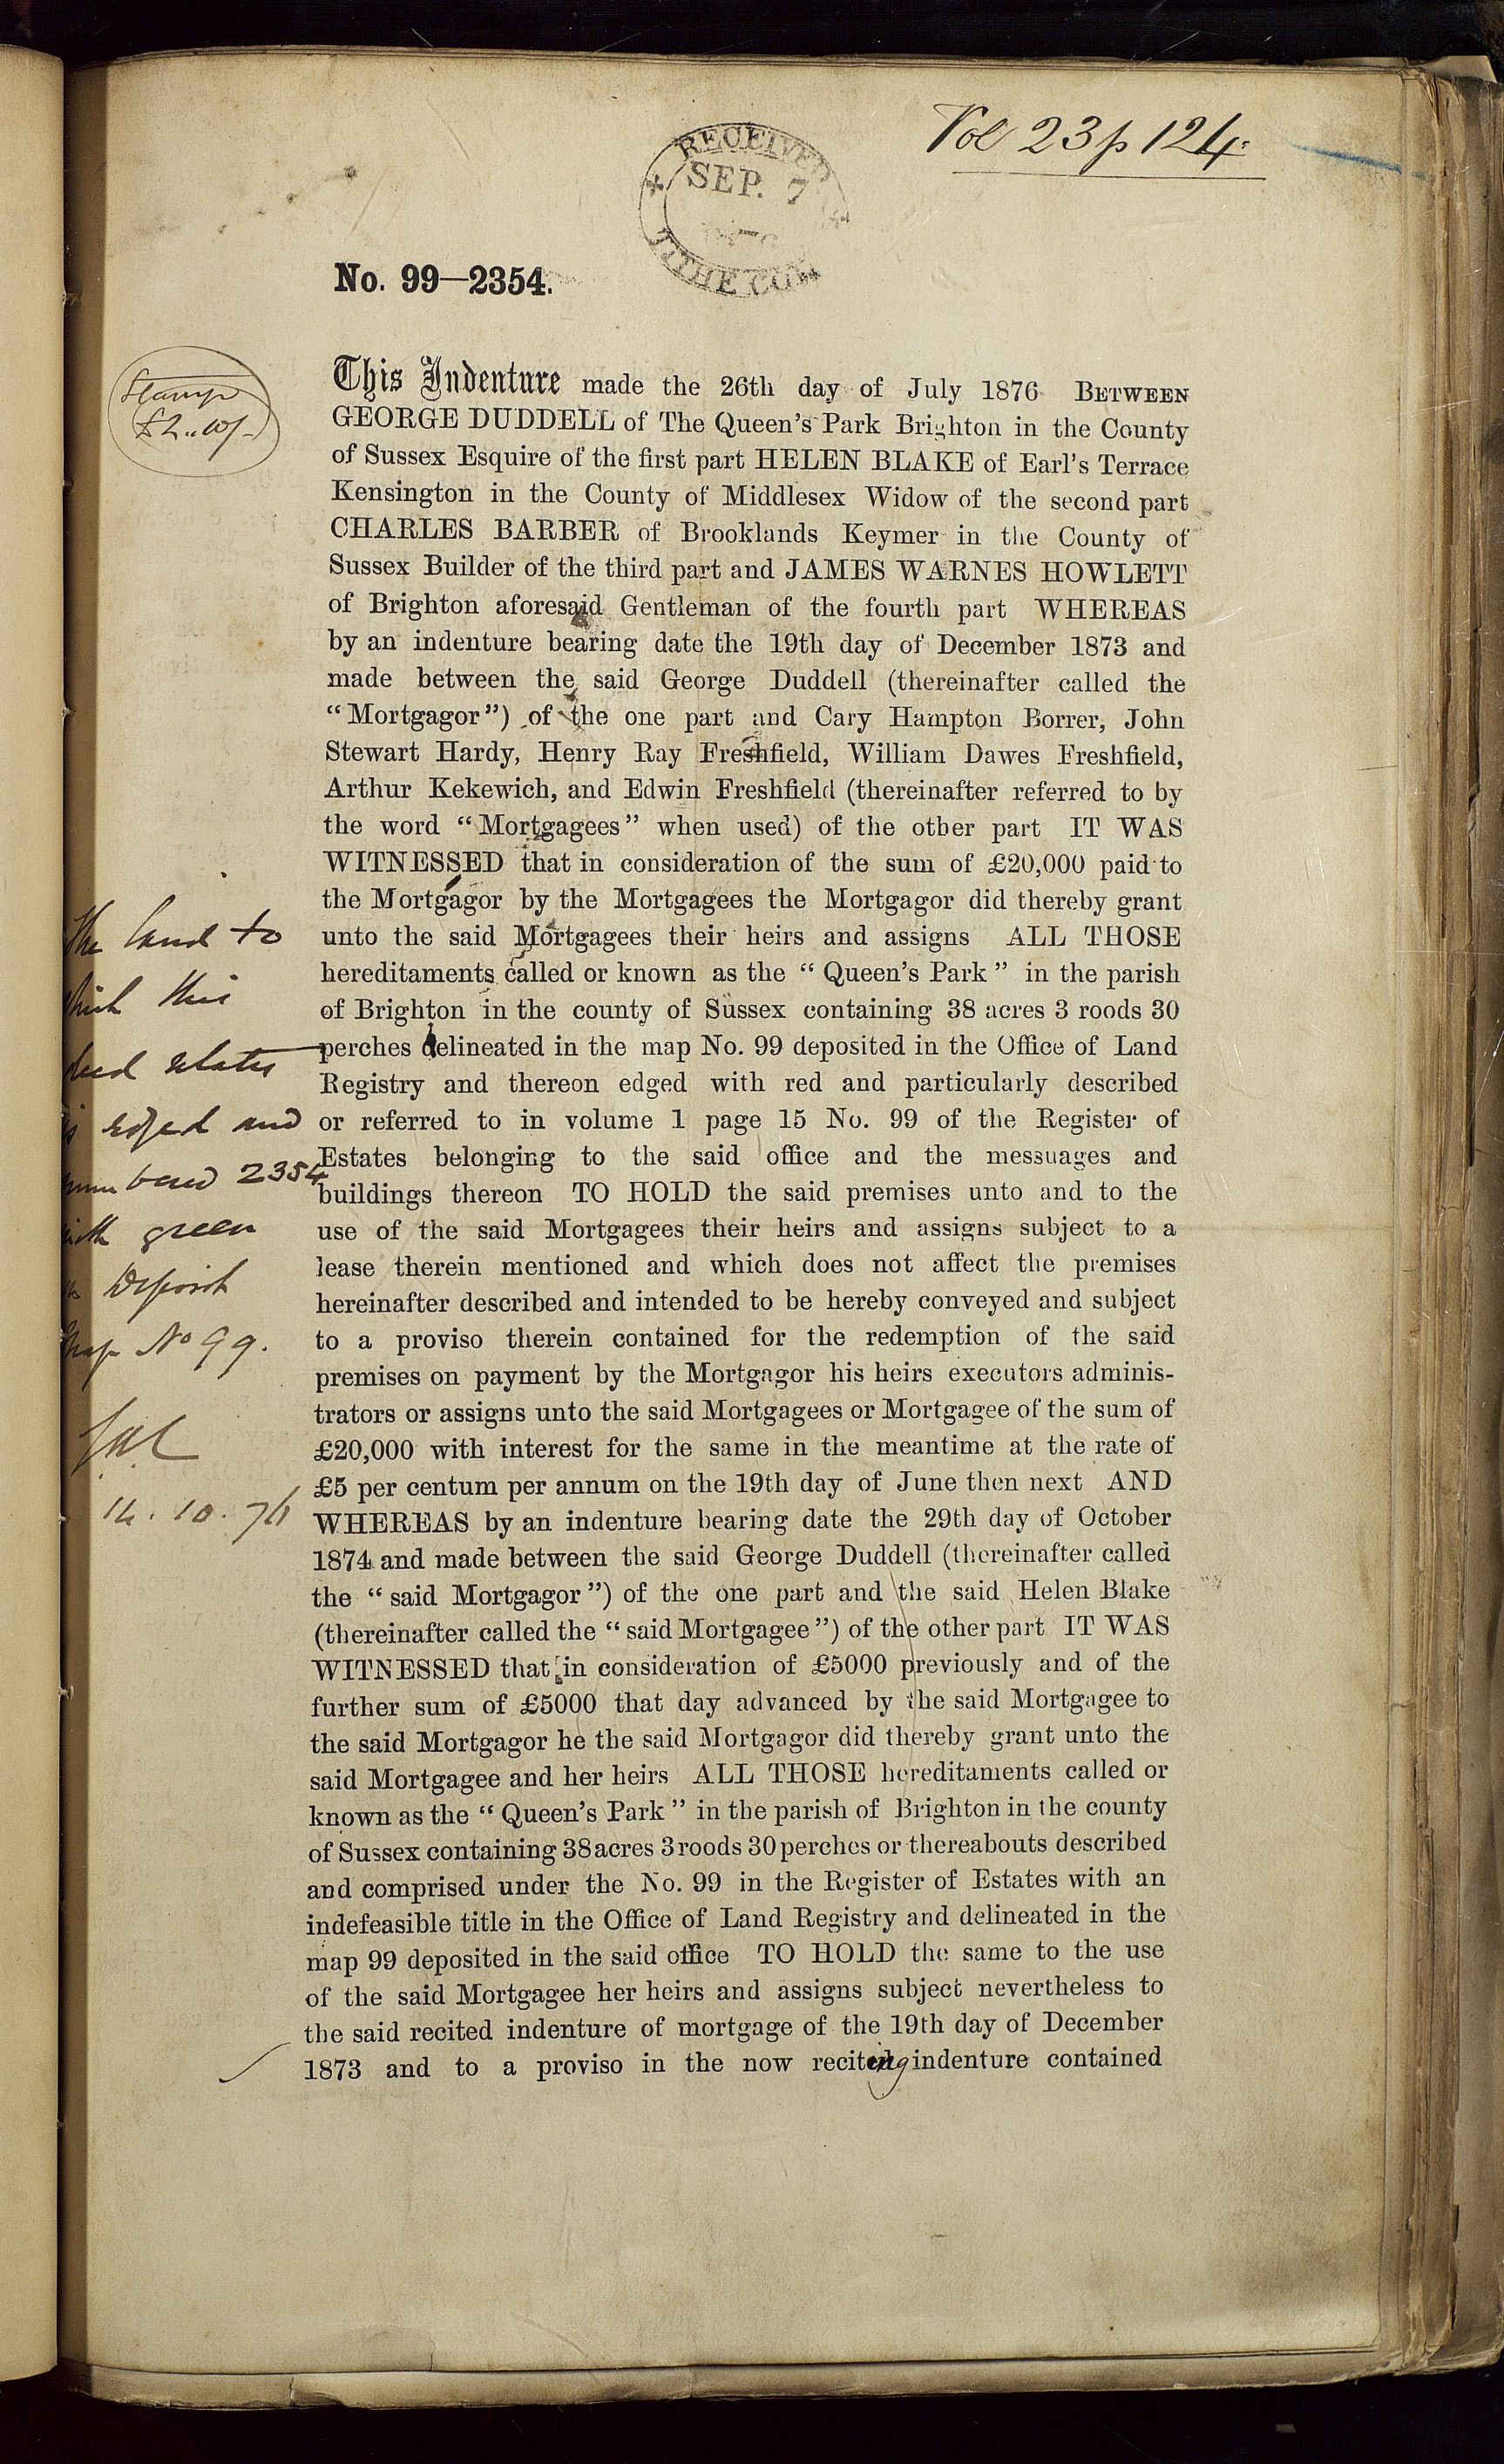 Vol 23 p 124.
RECEIVED
SEP. 7
TITHE COM
No. 99—2354.
Stamp
£2..10/-
This Indenture made the 26th day of July 1876 BETWEEN
GEORGE DUDDELL of The Queen's Park Brighton in the County
of Sussex Esquire of the first part HELEN BLAKE of Earl's Terrace
Kensington in the County of Middlesex Widow of the second part
CHARLES BARBER of Brooklands Keymer in the County of
Sussex Builder of the third part and JAMES WARNES HOWLETT
of Brighton aforesaid Gentleman of the fourth part WHEREAS
by an indenture bearing date the 19th day of December 1873 and
made between the said George Duddell (thereinafter called the
“Mortgagor”) of the one part and Cary Hampton Borrer, John
Stewart Hardy, Henry Ray Freshfield, William Dawes Freshfield,
Arthur Kekewich, and Edwin Freshfield (thereinafter referred to by
the word “Mortgagees” when used) of the other part IT WAS
WITNESSED that in consideration of the sum of £20,000 paid to
the Mortgagor by the Mortgagees the Mortgagor did thereby grant
unto the said Mortgagees their heirs and assigns ALL THOSE
hereditaments called or known as the “Queen's Park” in the parish
of Brighton in the county of Sussex containing 38 acres 3 roods 30
perches delineated in the map No. 99 deposited in the Office of Land
Registry and thereon edged with red and particularly described
or referred to in volume 1 page 15 No. 99 of the Register of
Estates belonging to the said office and the messuages and
buildings thereon TO HOLD the said premises unto and to the
use of the said Mortgagees their heirs and assigns subject to a
lease therein mentioned and which does not affect the premises
hereinafter described and intended to be hereby conveyed and subject
to a proviso therein contained for the redemption of the said
premises on payment by the Mortgagor his heirs executors adminis-
trators or assigns unto the said Mortgagees or Mortgagee of the sum of
£20,000 with interest for the same in the meantime at the rate of
£5 per centum per annum on the 19th day of June then next AND
WHEREAS by an indenture bearing date the 29th day of October
1874 and made between the said George Duddell (thereinafter called
the “said Mortgagor”) of the one part and the said Helen Blake
(thereinafter called the “said Mortgagee”) of the other part IT WAS
WITNESSED that in consideration of £5000 previously and of the
further sum of £5000 that day advanced by the said Mortgagee to
the said Mortgagor he the said Mortgagor did thereby grant unto the
said Mortgagee and her heirs ALL THOSE hereditaments called or
known as the “Queen's Park” in the parish of Brighton in the county
of Sussex containing 38 acres 3 roods 30 perches or thereabouts described
and comprised under the No. 99 in the Register of Estates with an
indefeasible title in the Office of Land Registry and delineated in the
map 99 deposited in the said office TO HOLD the same to the use
of the said Mortgagee her heirs and assigns subject nevertheless to
the said recited indenture of mortgage of the 19th day of December
1873 and to a proviso in the now reciting indenture contained
The land to
which this
deed relates
is edged and
numbered 2354
with green
on Deposit
Map No 99.
14.10.76